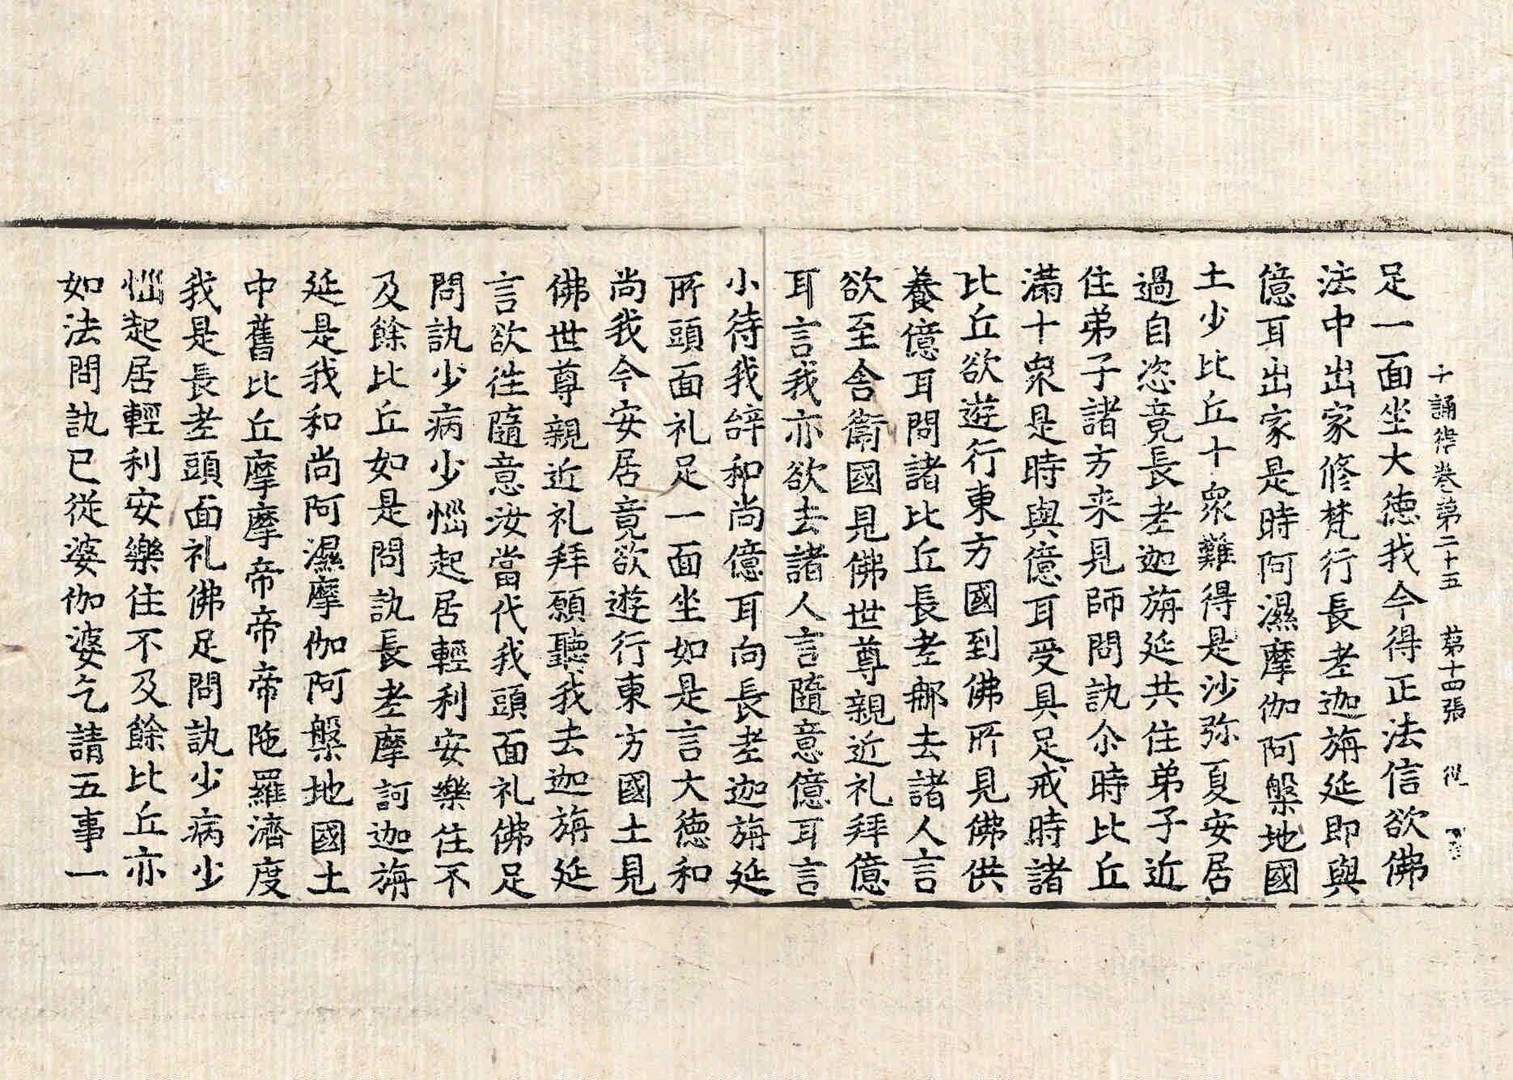 十誦律卷第二十五 第十四張 從
足一面坐大德我今得正法信欲佛
法中出家修梵行長老迦旃延即與
億耳出家是時阿濕摩伽阿槃地國
土少比丘十衆難得是沙弥夏安居
過自恣竟長老迦旃延共住弟子近
住弟子諸方来見師問訊尒時比丘
滿十衆是時與億耳受具足戒時諸
比丘欲遊行東方國到佛所見佛供
養億耳問諸比丘長老那去諸人言
欲至舍衞國見佛世尊親近礼拜億
耳言我亦欲去諸人言隨意億耳言
小待我辞和尚億耳向長老迦旃延
所頭面礼足一面坐如是言大德和
尚我今安居竟欲遊行東方國土見
佛世尊親近礼拜願聽我去迦旃延
言欲徃隨意汝當代我頭面礼佛足
問訊少病少惱起居輕利安樂住不
及餘比丘如是問訊長老摩訶迦旃
延是我和尚阿濕摩伽阿槃地國土
中舊比丘摩摩帝帝帝陁羅濟度
我是長老頭面礼佛足問訊少病少
惱起居輕利安樂住不及餘比丘亦
如法問訊已從婆伽婆乞請五事一